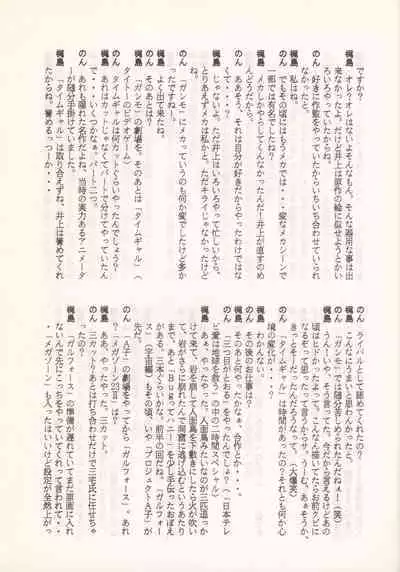 ですか？
梶島　オイオイオレはないよそんなもん。そんな器用な事は出
来なかったよ。だけど井上は原作の絵に似せようとかい
ろいろやっていたから。
のん　好きに作監をやっていたからいちいち合わせていられ
なかったと。
梶島　私はね。
のん　でもその頃にはもうメカでは・・・変なメカシーンで
一部では有名でした？
梶島　メカしかやらしてくんなかったんだ！井上が直すのめ
んどうだから。
のん　ああそう、それは自分が好きだからやったわけではな
くて・・・？
梶島　じゃないよ。ただ井上はいろいろやって忙しいから、
とりあえずメカは私かと。ただキライじゃなかったけど
ね。
のん　「ガンモ」にメカっていうのも何か変でしたけど多か
ったですねー。
梶島　よく出て来たね。
のん　そのあとは？
梶島　「ガンモ」の劇場を。そのあとは「タイムギャル」（
タイトーのビデオゲーム）
のん　タイムギャルは何カットぐらいやったんでしょう？
梶島　あれはカットじゃなくてパートで分けてやっていたん
で・・・いくつかなぁ。パート二つ。
のん　あれも隠れた名作だよね。当時の実力あるアニメータ
ーが随分手掛けてましたし。
梶島　「タイムギャル」は取り合えずね、井上は誉めてくれ
たからね。誉めるっつーか。
のん　ライバルとして認めてくれたの？
梶島　こんなにうまいと思わんかったと。
のん　「ガンモ」でどう思われてたんだねぇ！（笑）
梶島　うんーいや、そう言ってた。今だから言えるけどあの
頃はヒドかったよって。こんなん描いてたらお前クビに
きっとなってたって言うからサ、うーむ。あぁそうか、
きっとそーだったんだろうなって。（大爆笑）
のん　「タイムギャル」は時間があったの？それとも何か心
境の変化が？
梶島　わかんない。
のん　その後のお仕事は？
梶島　そのあと何やったかなぁ、合作とか・・・。
のん　「三つ目がとおる」をやったんでしょ？（日本テレ
ビ愛は地球を救う」の中の二時間スペシャル）
梶島　あぁ、やったやった。人面鳥みたいなのが三匹追っか
けて、岩から岩を刺して人面鳥を下敷きにしたら火が吹い
て、岩がさらに崩れて来るんで洞窟に逃げ込むというあたり
まで。あと「Ｂｕｇってハニー」を少し手伝ったおぼえ
がある。三本ぐらいかな。前半の回だね。「ガルフォー
ス」（宇宙編）もその頃、いや「プロジェクトＡ子」が
先か。
のん　「Ａ子」の劇場をやってから「ガルフォース」。あれ
？「メガゾーン23Ⅱ」は？
梶島　ああ、やったやった。三カット。
のん　三カット？あとは打ち合わせだけで三宅氏に任せちゃ
った？
梶島　「ガルフォース」の準備が遅れていてまだ原画に入れ
ないんで先にこっちをやっていてくれって言われて・・
・「メガゾーン」も入ったはいいけど設定が全然上がっ